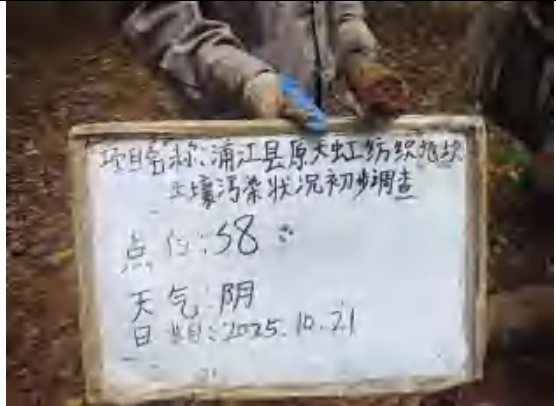 项目名称:浦江县原天虹纺织地块
土壤污染状况初步调查
点位:S8
天气:阴
日期:2025.10.21